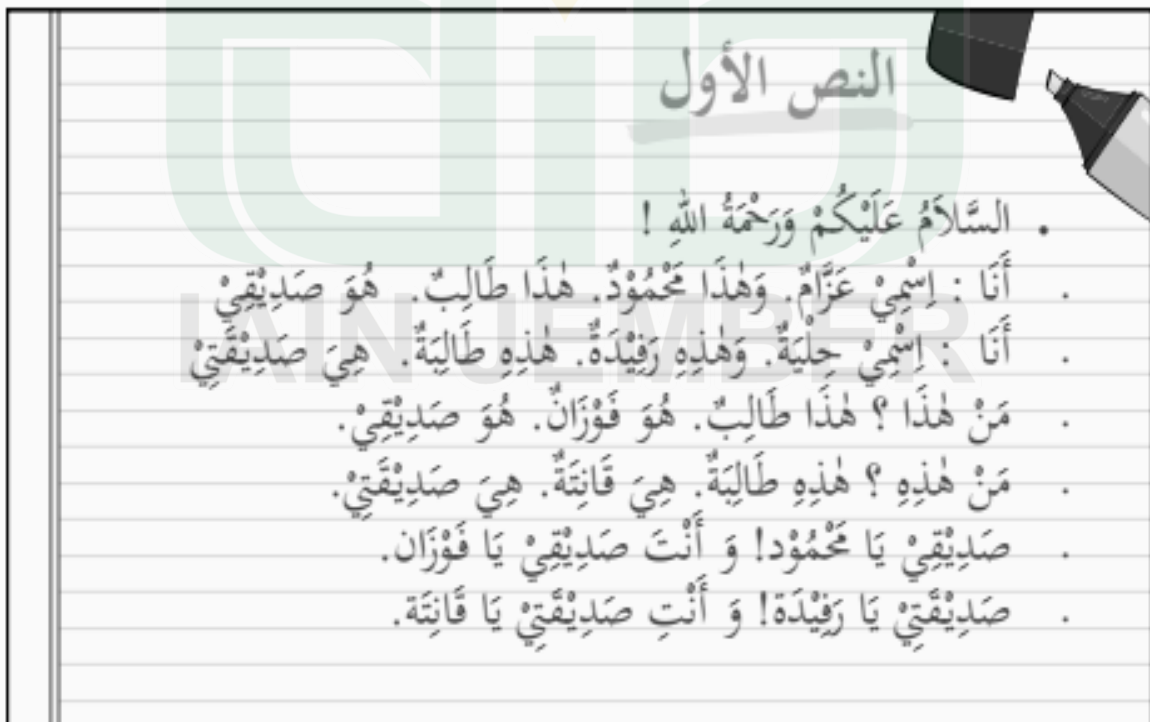 النص الأول
• السَّلاَمُ عَلَيْكُمْ وَرَحْمَةُ اللهِ !
. أَنَا : اِسْمِيْ عَزَّامٌ. وَهٰذَا مَحْمُوْدٌ. هٰذَا طَالِبٌ. هُوَ صَدِيْقِيْ
. أَنَا : اِسْمِيْ حِلْيَةٌ. وَهٰذِهِ رَفِيْدَةٌ. هٰذِهِ طَالِبَةٌ. هِيَ صَدِيْقَتِيْ
IAIN JEMBER
. مَنْ هٰذَا ؟ هٰذَا طَالِبٌ. هُوَ فَوْزَانٌ. هُوَ صَدِيْقِيْ.
. مَنْ هٰذِهِ ؟ هٰذِهِ طَالِبَةٌ. هِيَ قَانِتَةٌ. هِيَ صَدِيْقَتِيْ.
. صَدِيْقِيْ يَا مَحْمُوْد! وَ أَنْتَ صَدِيْقِيْ يَا فَوْزَان.
. صَدِيْقَتِيْ يَا رَفِيْدَة! وَ أَنْتِ صَدِيْقَتِيْ يَا قَانِتَة.